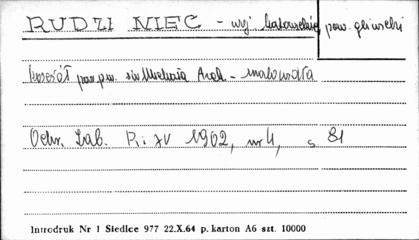 RUDZINIEC - woj. katowickie, pow. gliwicki
kościół par. p.w. św. Michała Arch. - malowidła
Ochr. Zab. R. XV 1962, nr 4, s 81
Introdruk Nr 1 Siedlce 977 22.X.64 p. karton A6 szt. 10000